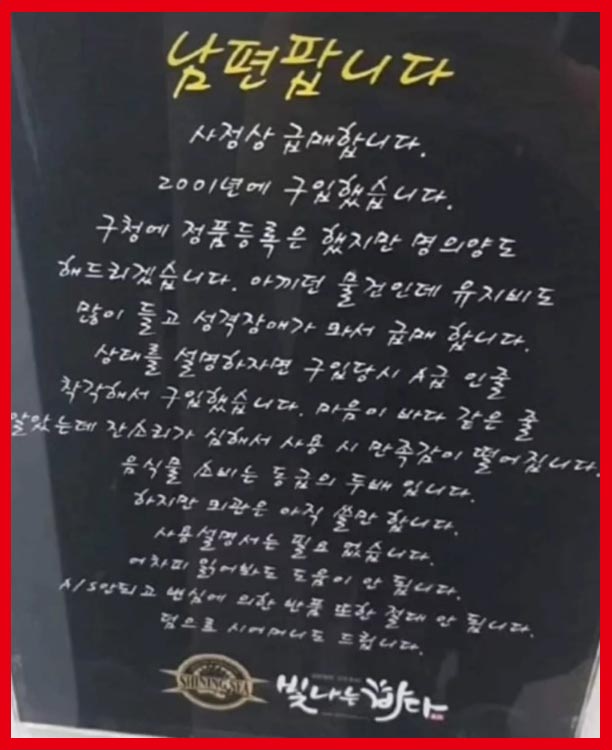 남편팝니다
사정상 급매합니다.
2001년에 구입했습니다.
구청에 정품등록은 했지만 명의양도
해드리겠습니다. 아끼던 물건인데 유지비도
많이 들고 성격장애가 와서 급매 합니다.
상태를 설명하자면 구입당시 A급 인줄
착각해서 구입했습니다. 마음이 바다 같은 줄
알았는데 잔소리가 심해서 사용 시 만족감이 떨어집니다.
음식물 소비는 동급의 두배 입니다.
하지만 외관은 아직 쓸만 합니다.
사용설명서는 필요 없습니다.
어차피 읽어봐도 도움이 안 됩니다.
A/S안되고 변심에 의한 반품 또한 절대 안 됩니다.
덤으로 시어머니도 드립니다.
SHINING SEA
빛나는 바다